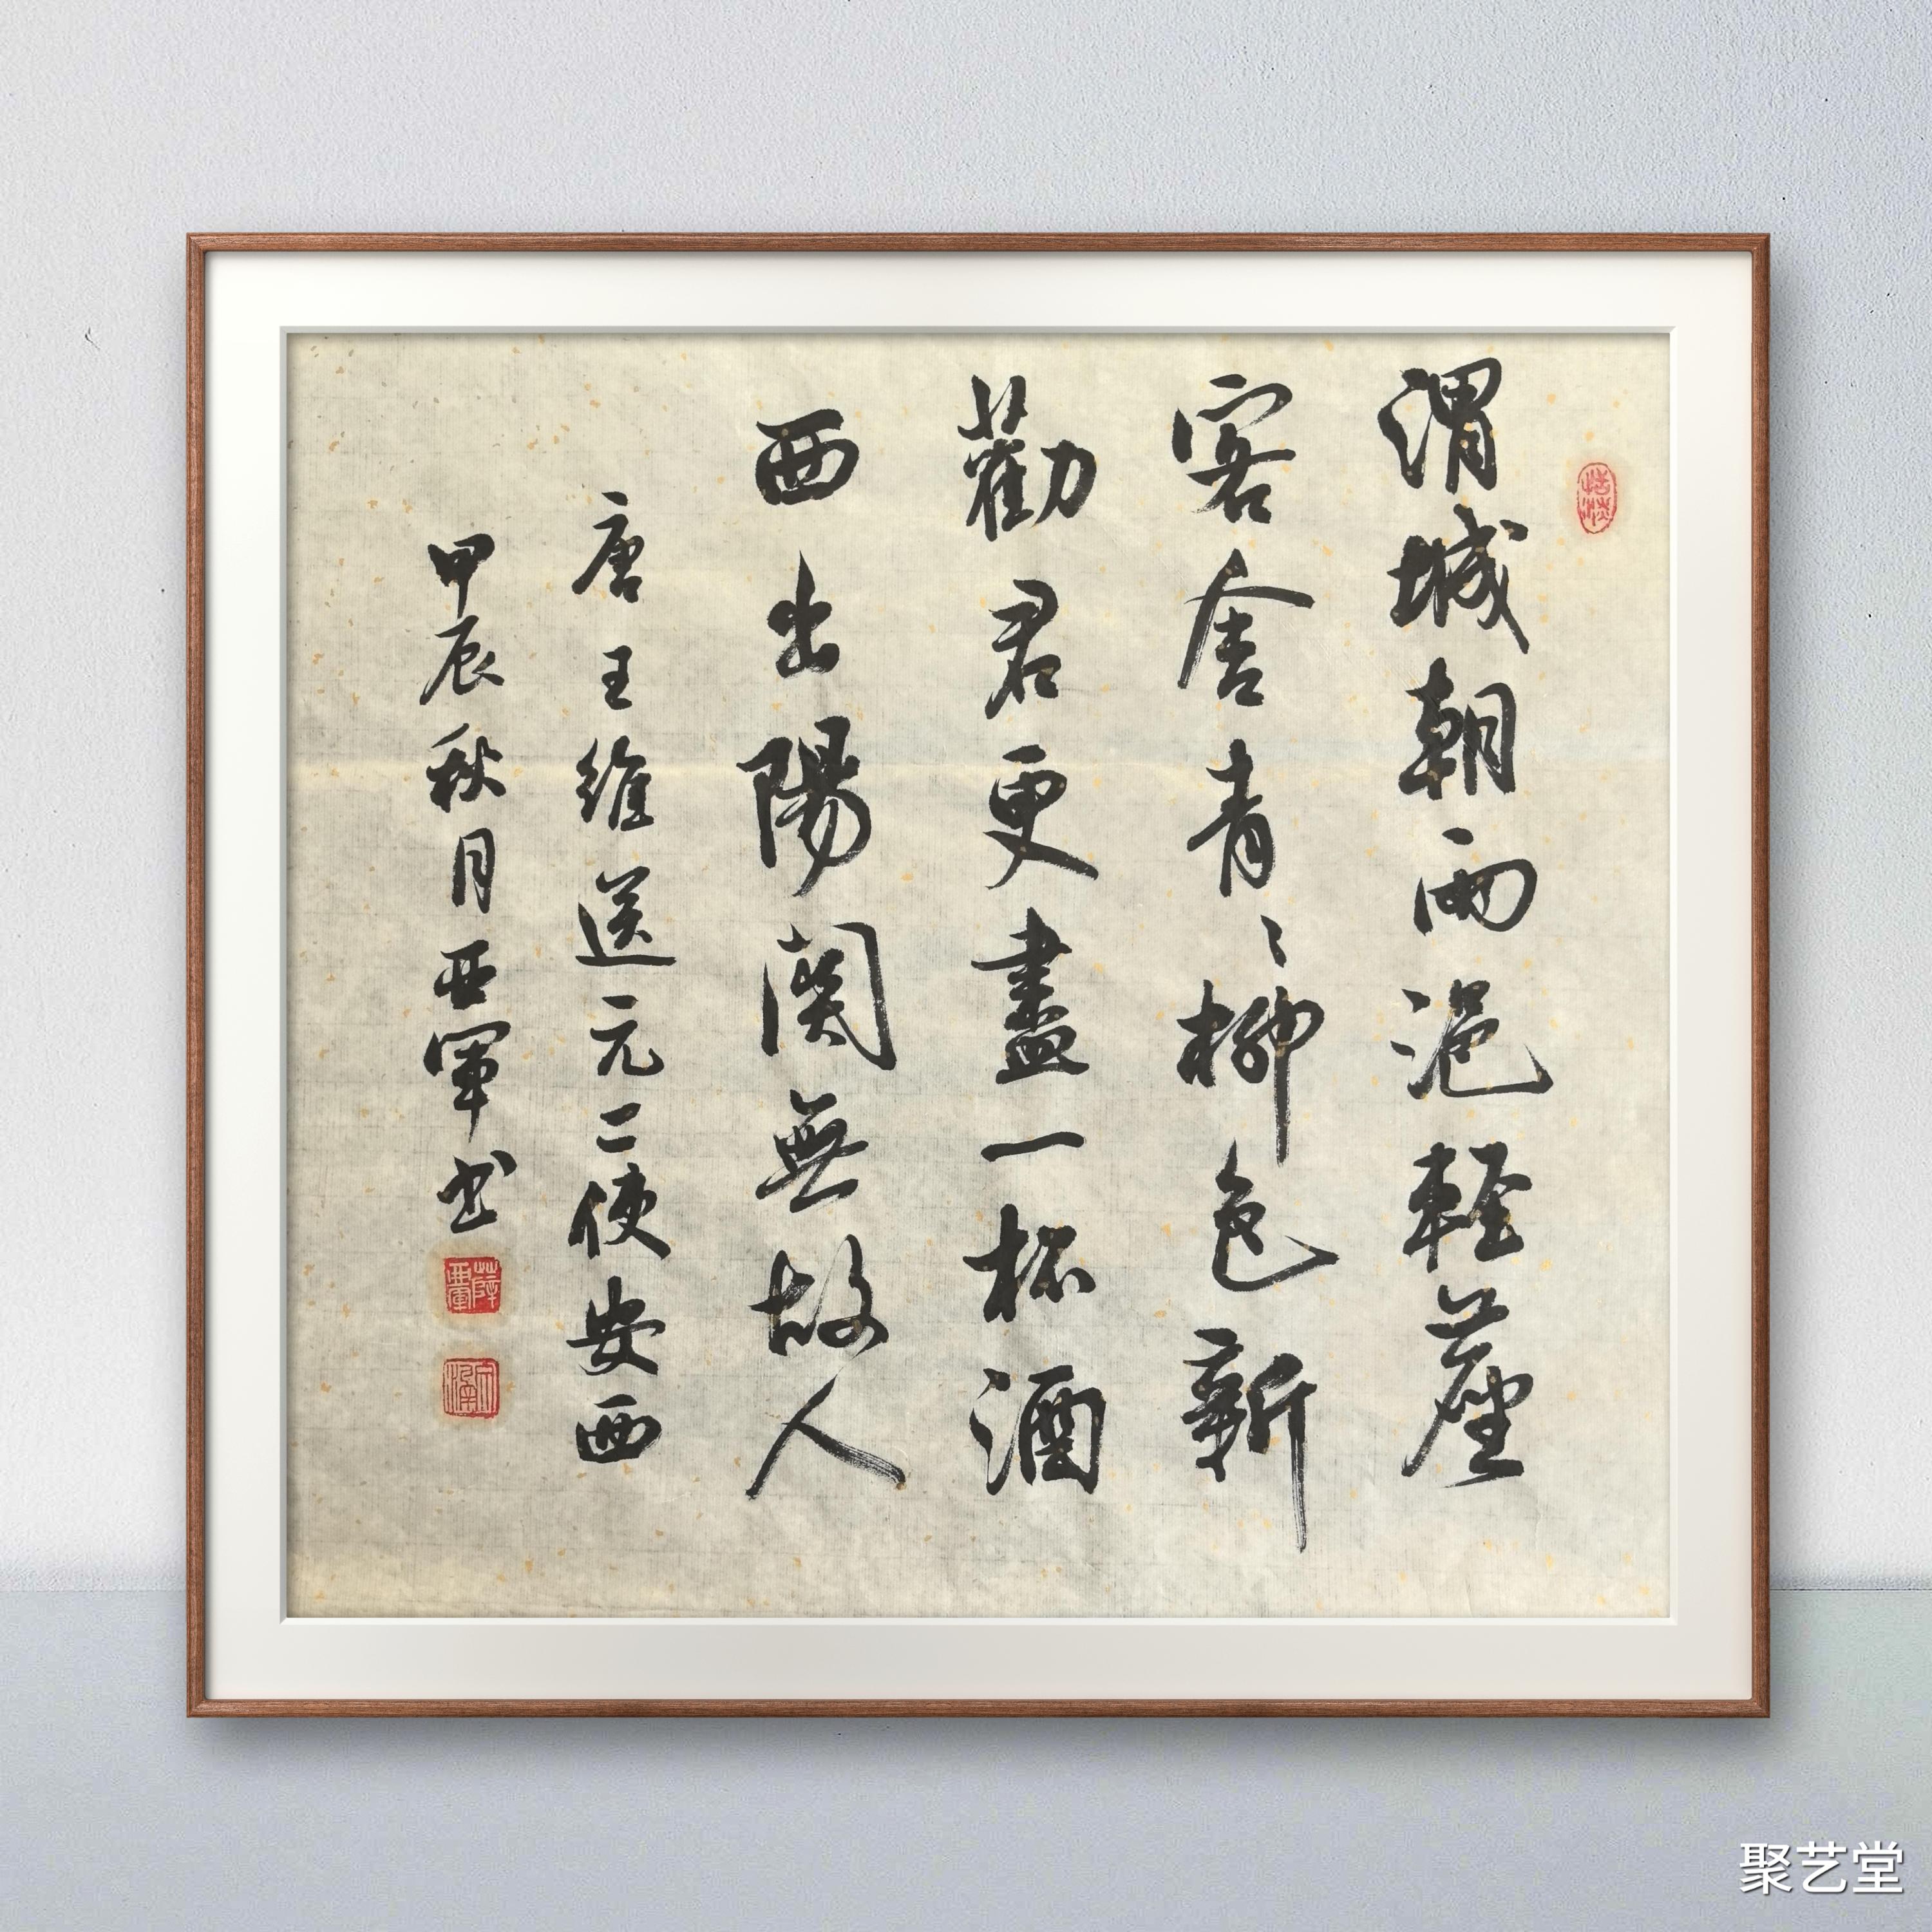 渭城朝雨浥軽塵
客舍青々柳色新
勸君更盡一杯酒
西出陽関無故人
唐王維送元二使安西
甲辰秋月亞軍书
薛亞軍
聚艺堂